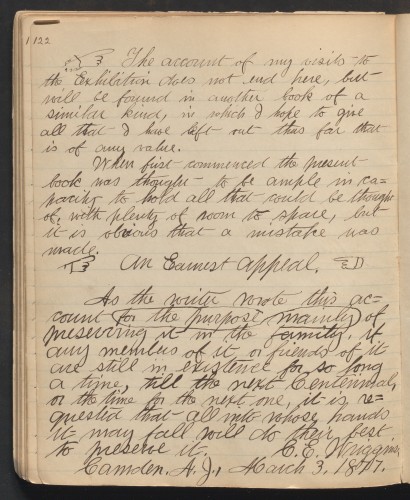 122
☞ The account of my visits to
the Exhibition does not end here, but
will be found in another book of a
similar kind, in which I hope to give
all that I have left out thus far that
is of any value.
When first commenced the present
book was thought to be ample in ca-
pacity to hold all that could be thought
of, with plenty of room to spare, but
it is obvious that a mistake was
made.
☞ An Earnest Appeal. ☜
As the writer wrote this ac-
count (for the purpose mainly) of
preserving it in the family, if
any members of it, or friends of it
are still in existence for so long
a time, till the next Centennial,
or the time for the next one, it is re-
quested that all into whose hands
it may fall will do their best
to preserve it. C. E. Wriggins,
Camden, N. J., March 3, 1877.